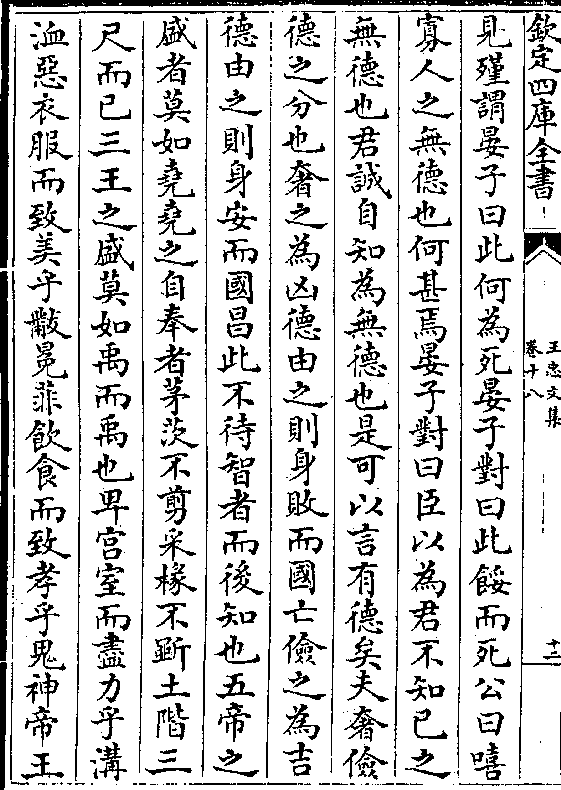 欽定四庫全書
王忠文集
卷十八
十二
見殣謂晏子曰此何為死晏子對曰此餒而死公曰嘻
寡人之無德也何甚焉晏子對曰臣以為君不知已之
無德也君誠自知為無德也是可以言有德矣夫奢儉
德之分也奢之為凶德由之則身敗而國亡儉之為吉
德由之則身安而國昌此不待智者而後知也五帝之
盛者莫如堯堯之自奉者茅茨不剪采椽不斲土階三
尺而已三王之盛莫如禹而禹也卑宫室而盡力乎溝
洫惡衣服而致美乎黻冕菲飲食而致孝乎鬼神帝王